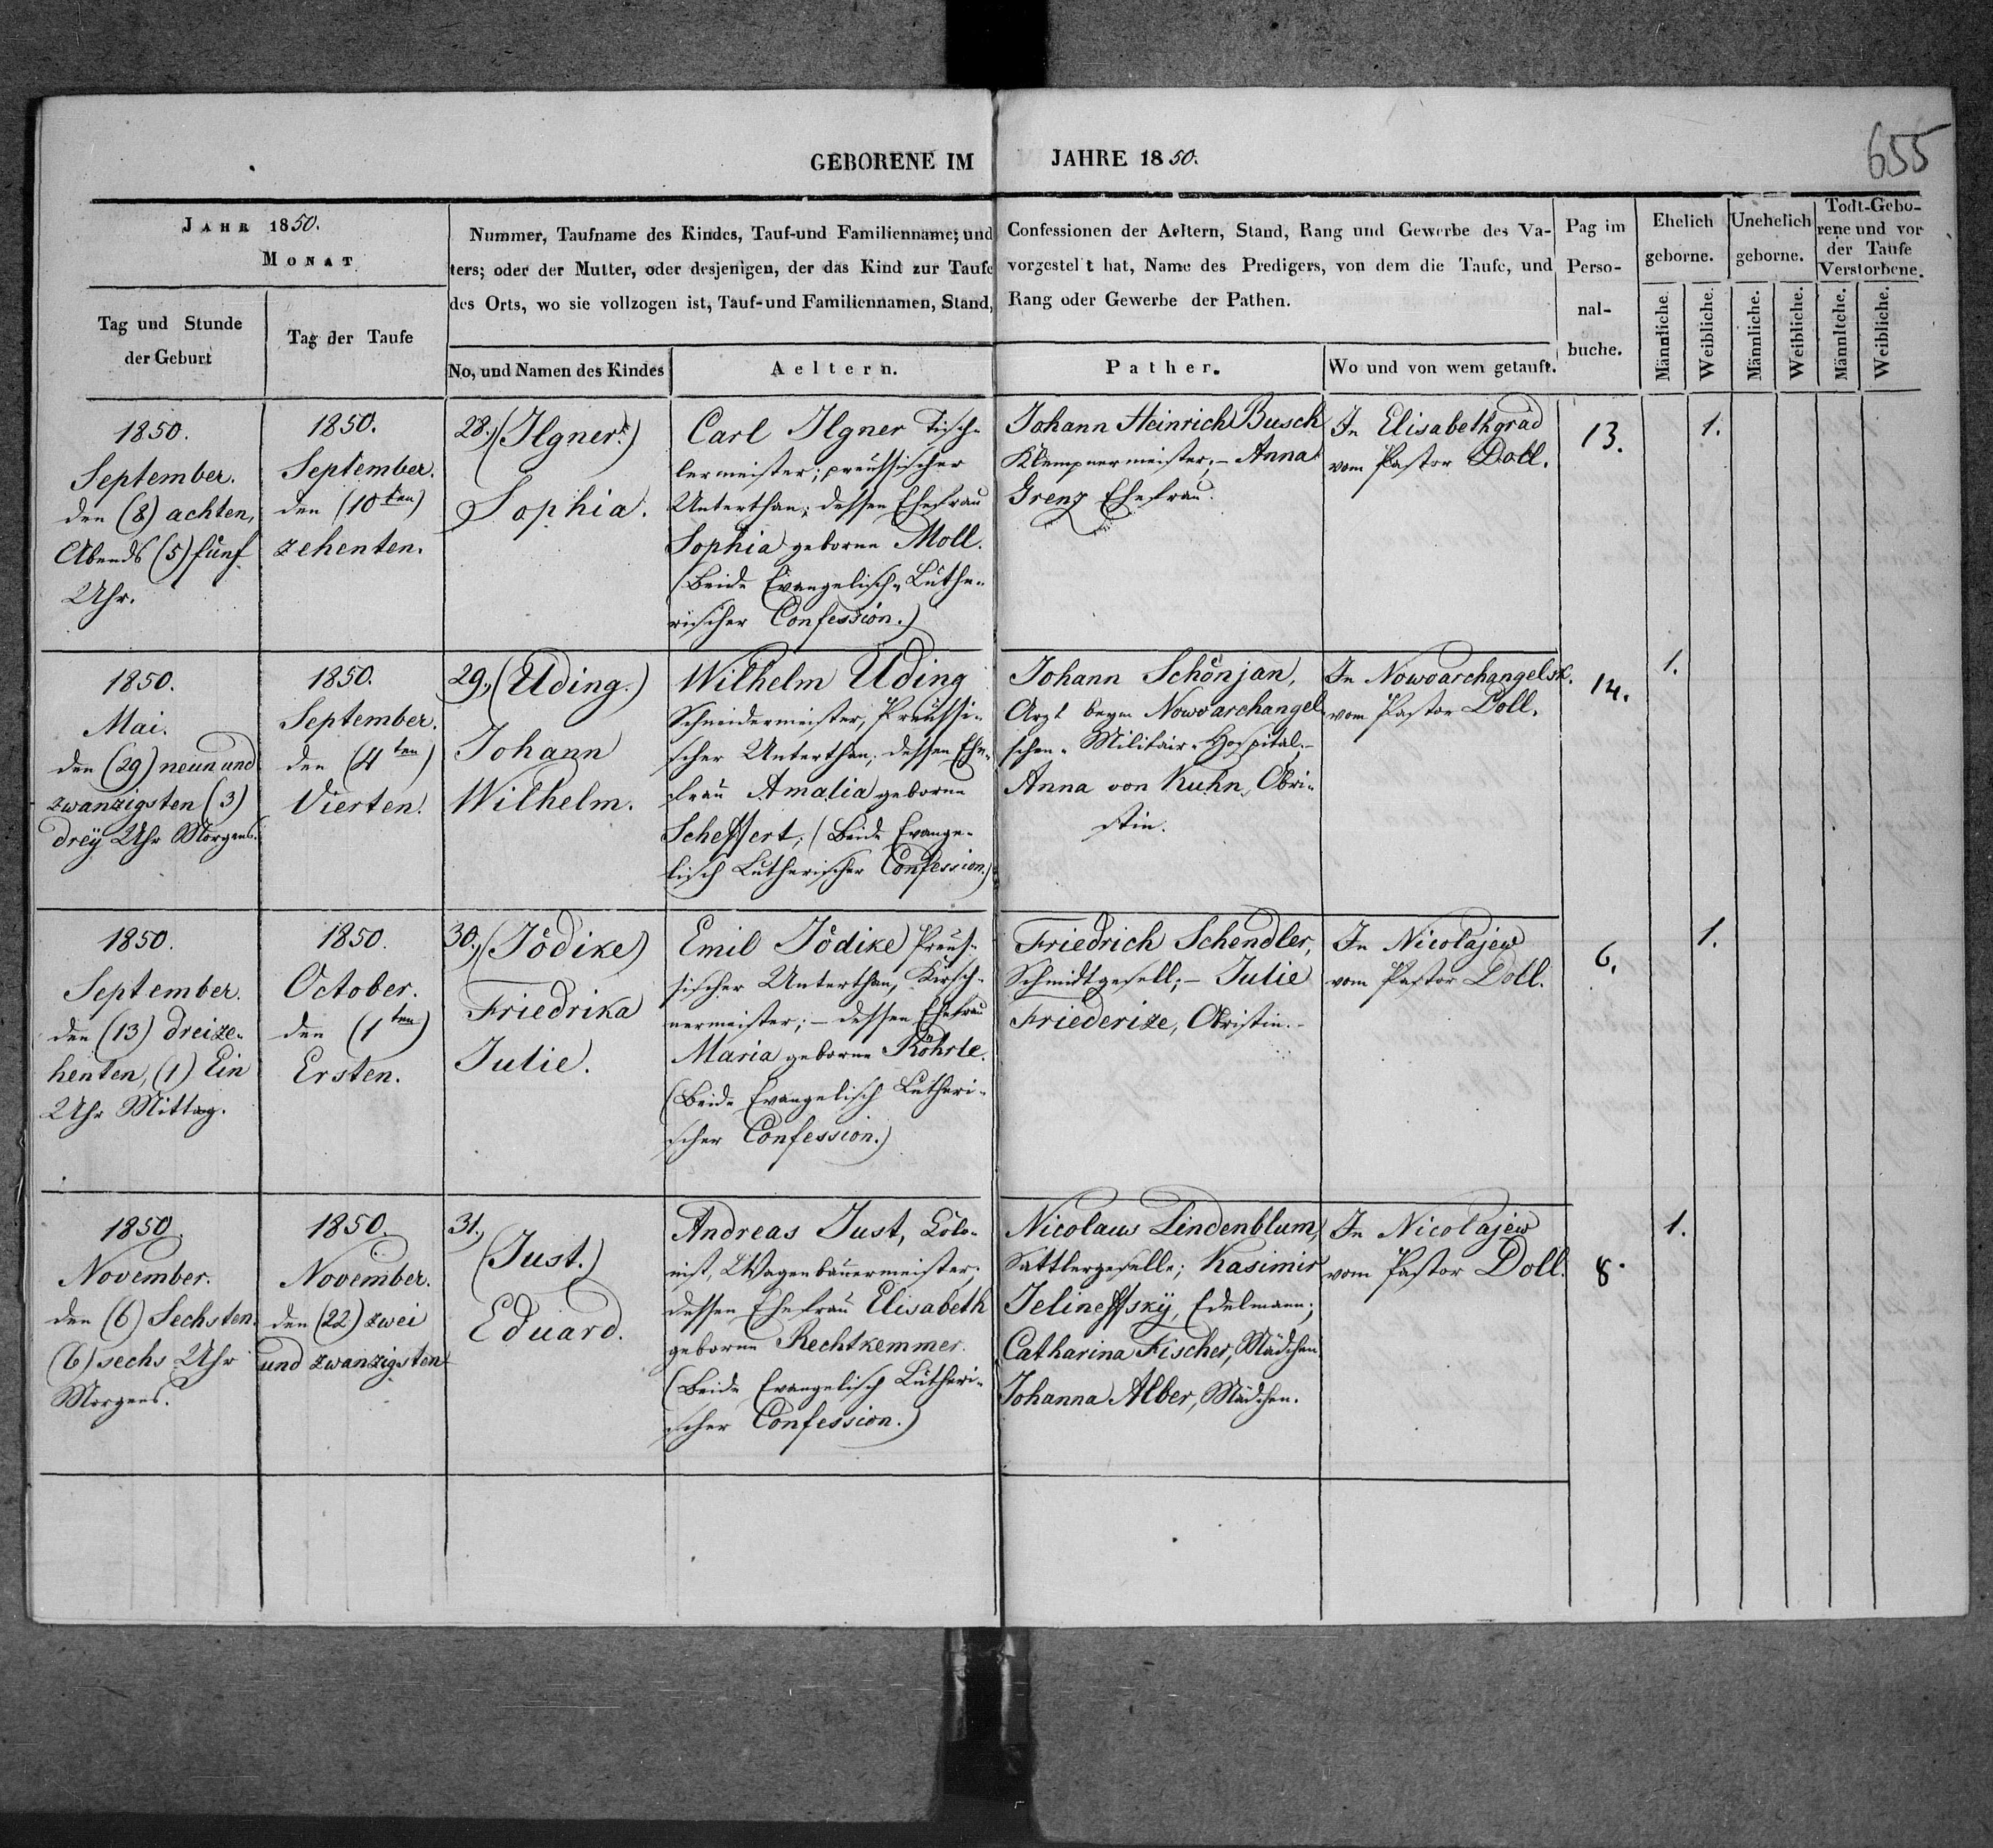 655
GEBORENE IM JAHRE 1850.
JAHR 1850.
MONAT
Tag und Stunde
der Geburt
Tag der Taufe
Nummer, Taufname des Kindes, Tauf-und Familienname; und Confessionen der Aeltern, Stand, Rang und Gewerbe des Va-
ters; oder der Mutter, oder desjenigen, der das Kind zur Taufe vorgestellt hat, Name des Predigers, von dem die Taufe, und
des Orts, wo sie vollzogen ist, Tauf-und Familiennamen, Stand, Rang oder Gewerbe der Pathen.
No, und Namen des Kindes
Aeltern.
Pather.
Wo und von wem getauft.
Pag im
Perso-
nal-
buche.
Ehelich
geborne.
Unehelich
geborne.
Todt-Gebo-
rene und vor
der Taufe
Verstorbene.
Männliche.
Weibliche.
Männliche.
Weibliche.
Männltche.
Weibliche.
1850.
September.
den (8) achten,
Abends (5) fünf
Uhr.
1850.
September.
den (10ten)
zehenten.
28., (Ilgner.)
Sophia.
Carl Ilgner Tisch-
lermeister; preussischer
Unterthan; dessen Ehefrau
Sophia geborne Moll.
(Beide Evangelisch-Luthe-
rischer Confession.)
Johann Heinrich Busch
Klempnermeister; - Anna
Grenz Ehefrau.
In Elisabethgrad
vom Pastor Doll.
13.
1.
1850.
Mai.
den (29) neun und
zwanzigsten (3)
drey Uhr Morgens.
1850.
September.
den (4ten)
Vierten.
29., (Uding.)
Johann
Wilhelm.
Wilhelm Uding
Schneidermeister, Preussi-
scher Unterthan; dessen Ehe-
frau Amalia geborne
Scheffert; (Beide Evange-
lisch Lutherischer Confession.)
Johann Schönjan,
Arzt beym Nowoarchangel-
schen-Militair-Hospital.-
Anna von Kuhn, Obri-
stin.
In Nowoarchangelsk.
vom Pastor Doll.
14.
1.
1850.
September.
den (13) dreize-
henten, (1) Ein
Uhr Mittag.
1850.
October.
den (1ten)
Ersten.
30., (Jödike)
Friedrika
Julie.
Emil Jödike Preus-
sischer Unterthan, Kirsch-
nermeister; - dessen Ehefrau
Maria geborne Röhrle.
(Beide Evangelisch Lutheri-
scher Confession.)
Friedrich Schendler,
Schmidtgesell; - Julie
Friederize, Obristin.-
In Nicolajew
vom Pastor Doll.
6.
1.
1850.
November.
den (6) Sechsten.
(6) sechs Uhr
Morgens.
1850.
November.
den (22) zwei
und zwanzigsten
31.,
(Just.)
Eduard.
Andreas Just, Colo-
nist, Wagenbauermeister;
dessen Ehefrau Elisabeth
geborne Rechtkemmer.
(Beide Evangelisch Lutheri-
scher Confession.)
Nicolaus Lindenblum,
Sattlergeselle; Kasimir
Jelineffsky, Edelmann;
Catharina Fischer, Mädchen
Johanna Alber, Mädchen.
In Nicolajew
vom Pastor Doll.
8.
1.